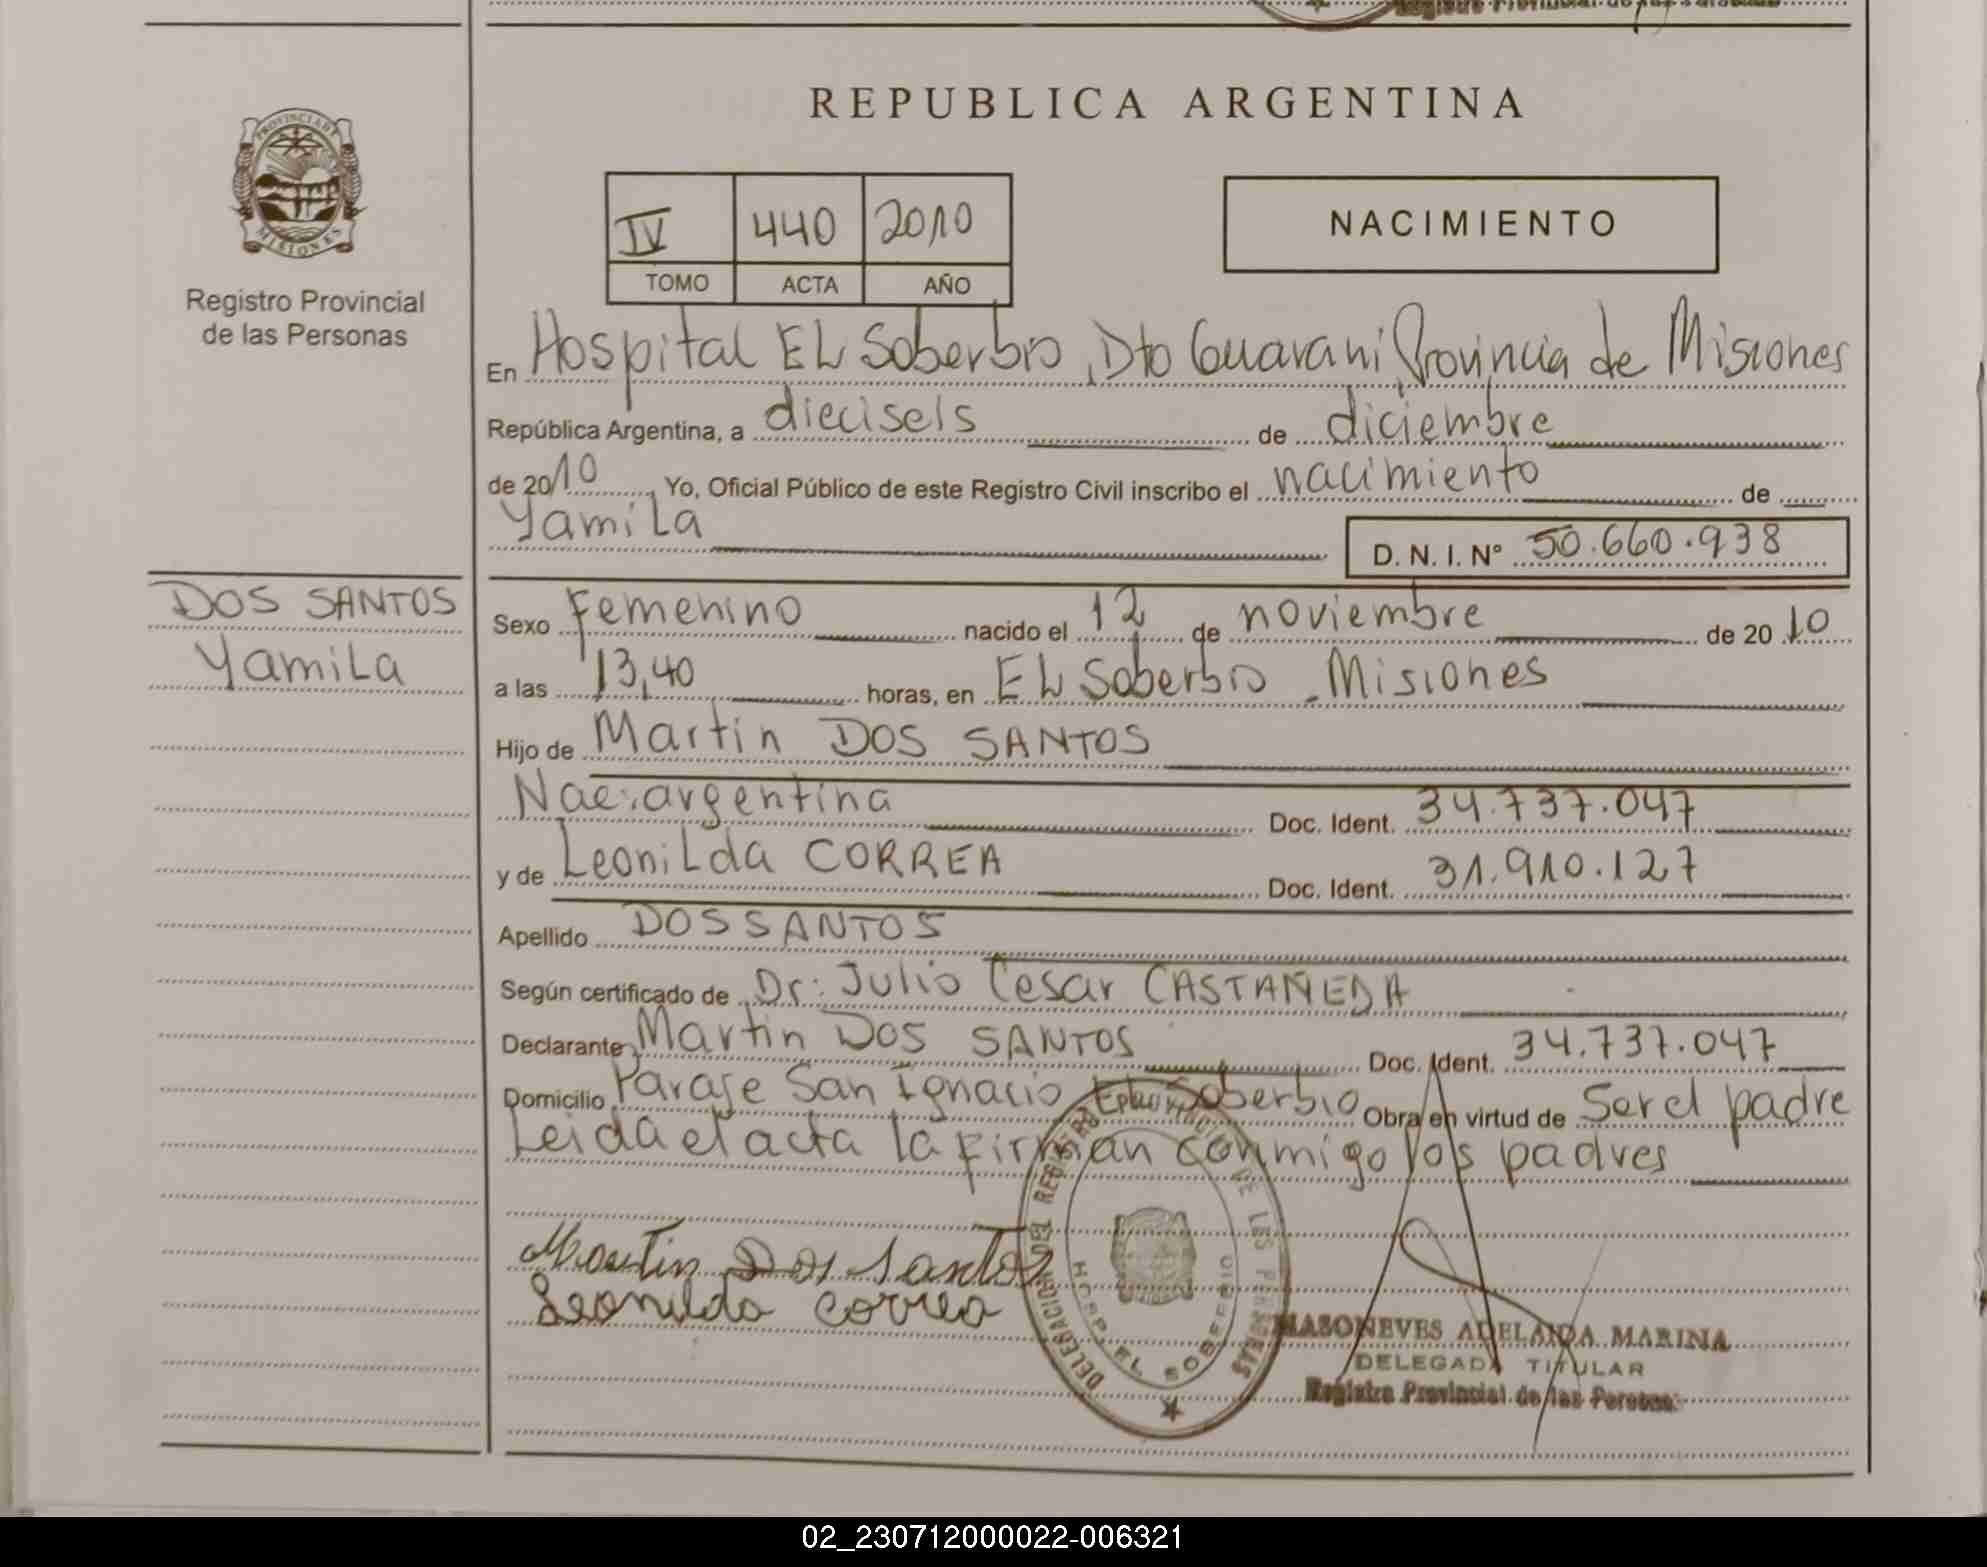 REPUBLICA ARGENTINA
PROVINCIA DE
MISIONES
Registro Provincial
de las Personas
IV 440 2010
TOMO ACTA AÑO
NACIMIENTO
En Hospital EL Soberbio, Dto Guarani, Provincia de Misiones
República Argentina, a dieciseis de diciembre
de 2010 Yo, Oficial Público de este Registro Civil inscribo el nacimiento de
Yamila
D. N. I. Nº 50.660.938
DOS SANTOS
Yamila
Sexo Femenino nacido el 12 de noviembre de 20 10
a las 13,40 horas, en EL Soberbio - Misiones
Hijo de Martin DOS SANTOS
Nac: argentina Doc. Ident. 34.737.047
y de Leonilda CORREA Doc. Ident. 31.910.127
Apellido DOS SANTOS
Según certificado de Dr: Julio Cesar CASTAÑEDA
Declarante Martin DOS SANTOS Doc. Ident. 34.737.047
Domicilio Paraje San Ignacio EL Soberbio Obra en virtud de Ser el padre
Leida el acta la firman conmigo los padres
Martin Dos Santos
Leonilda Correa
DELEGACION DEL REGISTRO PROVINCIAL DE LES PERSONAS
HOSP. EL SOBERBIO
MASONEVES ADELAIDA MARINA
DELEGADA TITULAR
Registro Provincial de las Personas
02_230712000022-006321